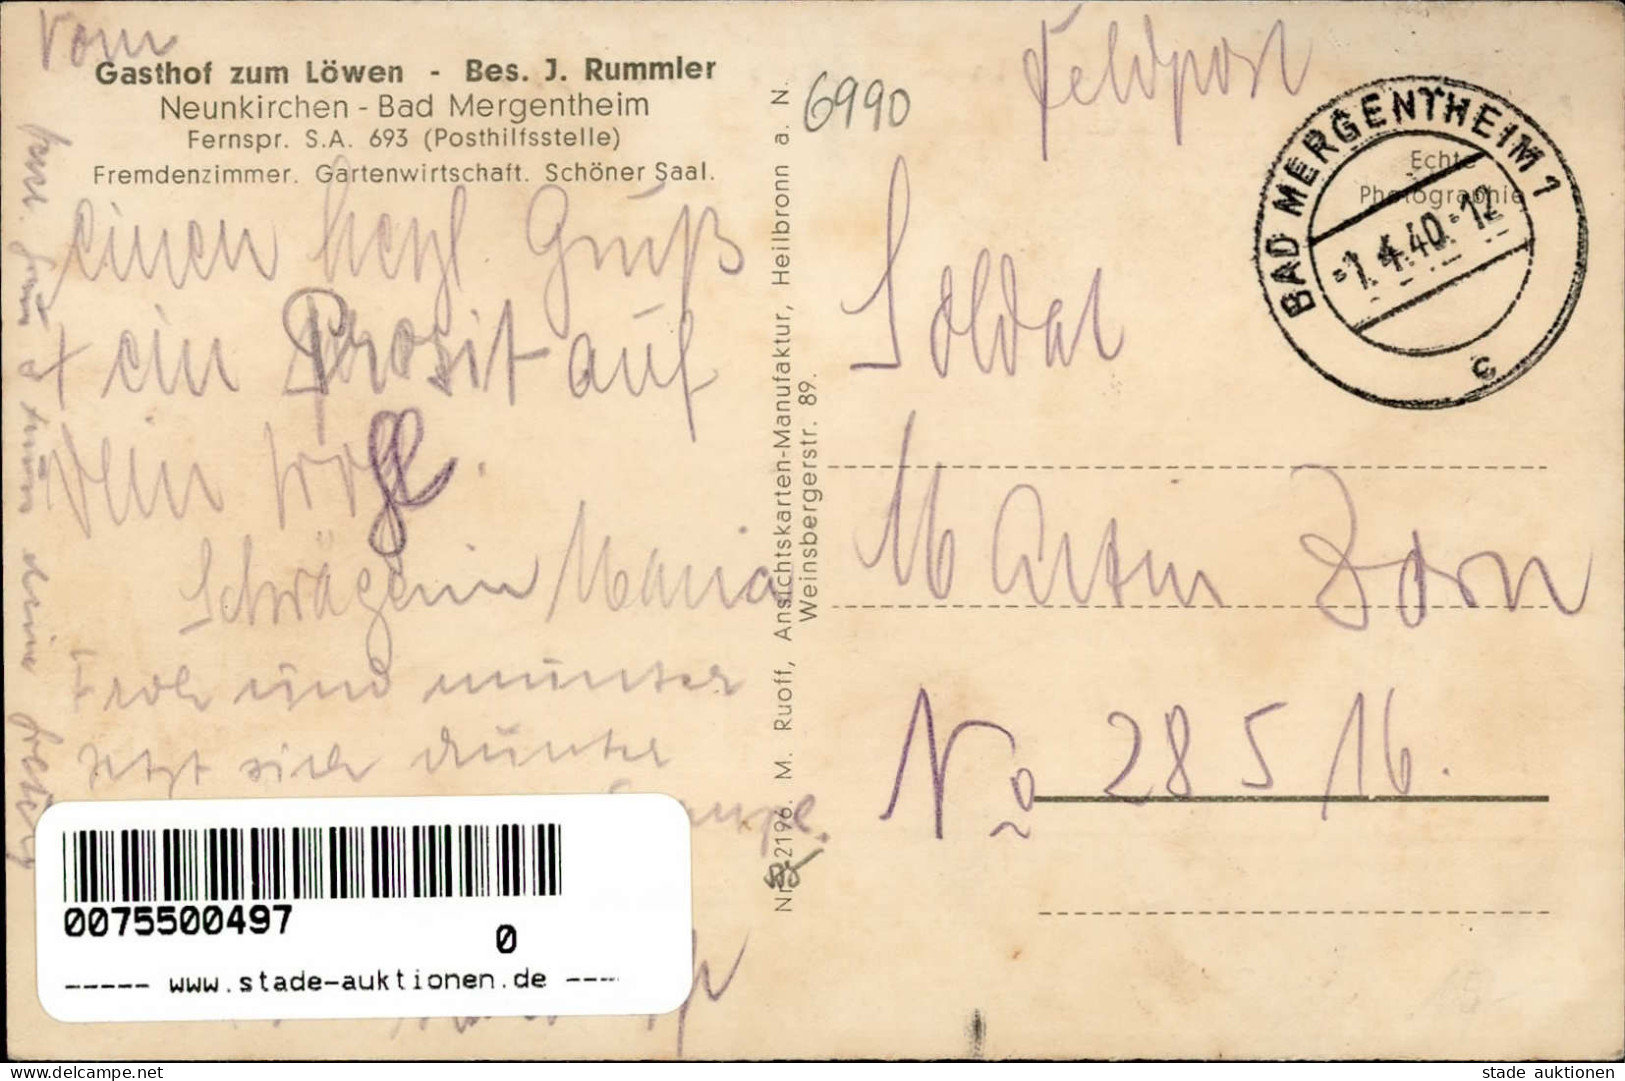 Vom
Gasthof zum Löwen - Bes. J. Rummler
Neunkirchen - Bad Mergentheim
Fernspr. S.A. 693 (Posthilfsstelle)
Fremdenzimmer. Gartenwirtschaft. Schöner Saal.
einen herzl. Gruß
+ ein Prosit auf
Dein Wohl.
Schwägerin Maria
Froh und munter
sich
Nr. 2196. M. Ruoff, Ansichtskarten-Manufaktur, Heilbronn a. N.
Weinsbergerstr. 89.
6990
Feldpost
Echte
Photographie
BAD MERGENTHEIM 1
-1.4.40.-12
c
Soldat
Martin Dorn
No 28516.
0075500497
0
----- www.stade-auktionen.de ----
delcampe.net
stade auktionen